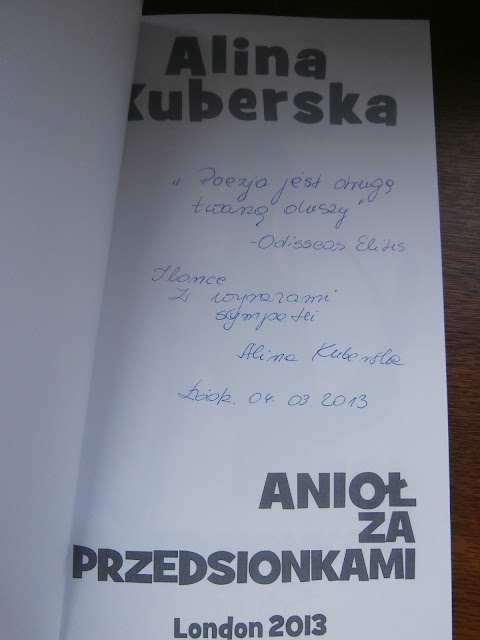 Alina
Kuberska
„Poezja jest drugą
twarzą duszy"
- Odisseas Elitis
Ilonce
Z wyrazami
sympatii
Alina Kuberska
04.03.2013
ANIOŁ
ZA
PRZEDSIONKAMI
London 2013